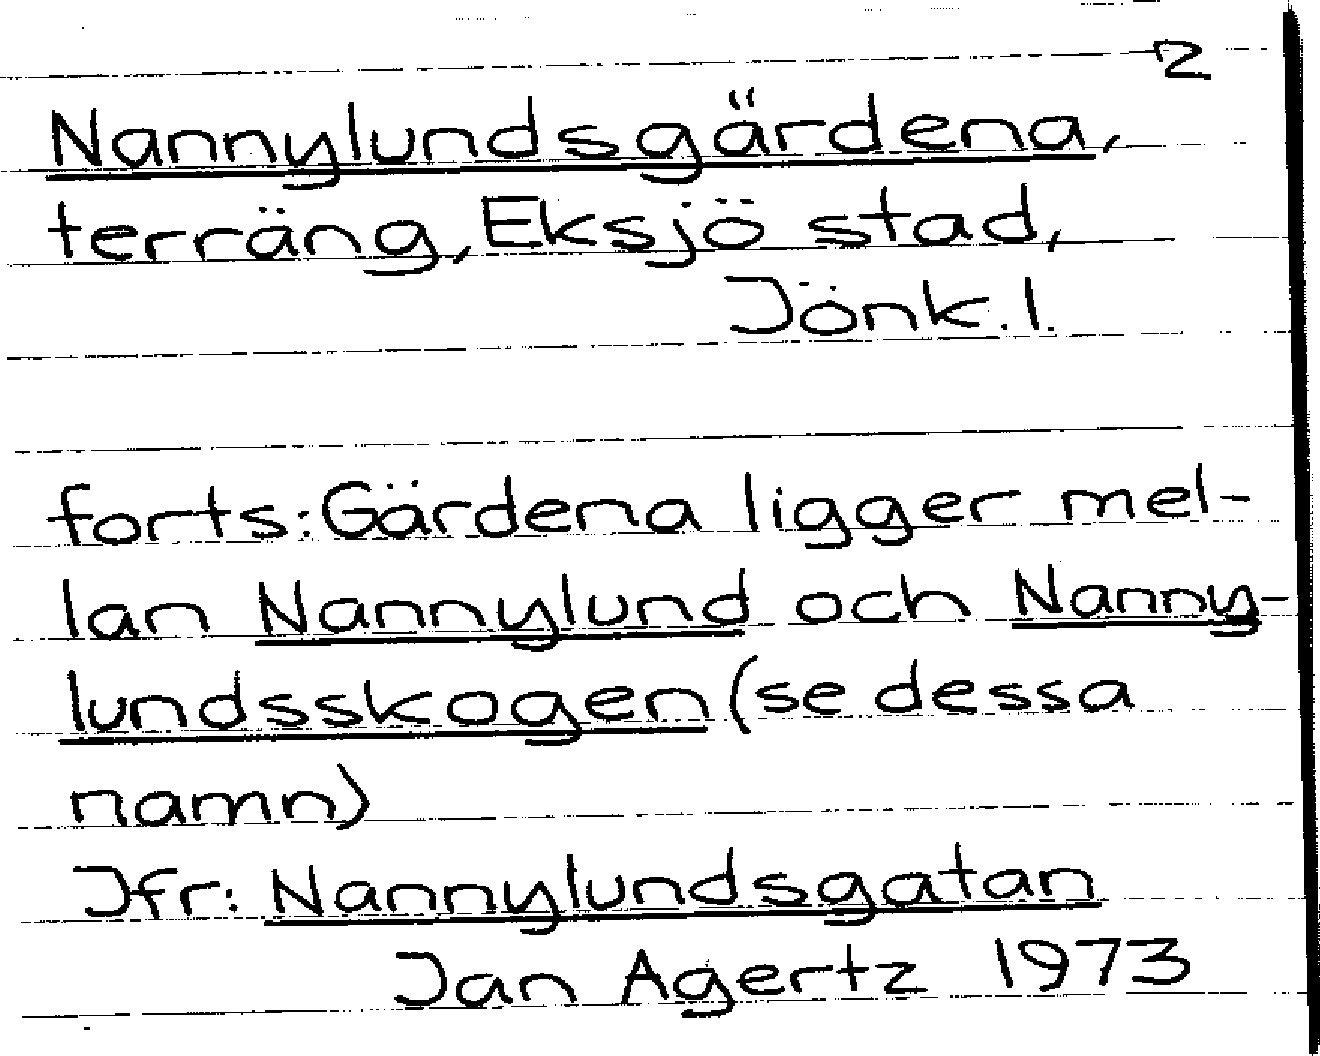 2
Nannylundsgärdena,
terräng, Eksjö stad,
Jönk. l.
forts: Gärdena ligger mel-
lan Nannylund och Nanny-
lundsskogen (se dessa
namn)
Jfr: Nannylundsgatan
Jan Agertz 1973